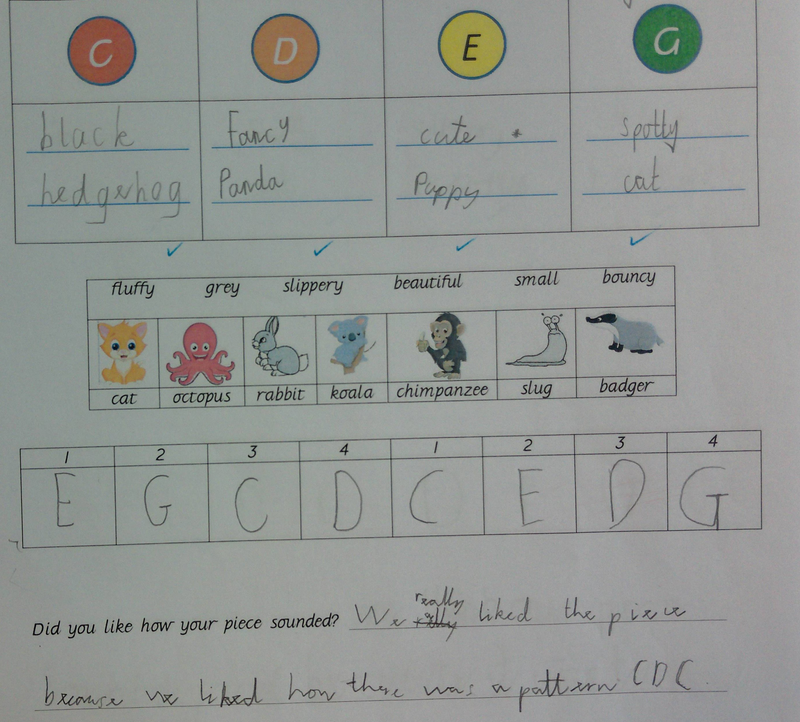 C D E G
black Fancy cute spotty
hedgehog Panda Puppy cat
fluffy grey slippery beautiful small bouncy
cat octopus rabbit koala chimpanzee slug badger
1 2 3 4 1 2 3 4
E G C D C E D G
really
Did you like how your piece sounded? We liked the piece
because we liked how there was a pattern CDC